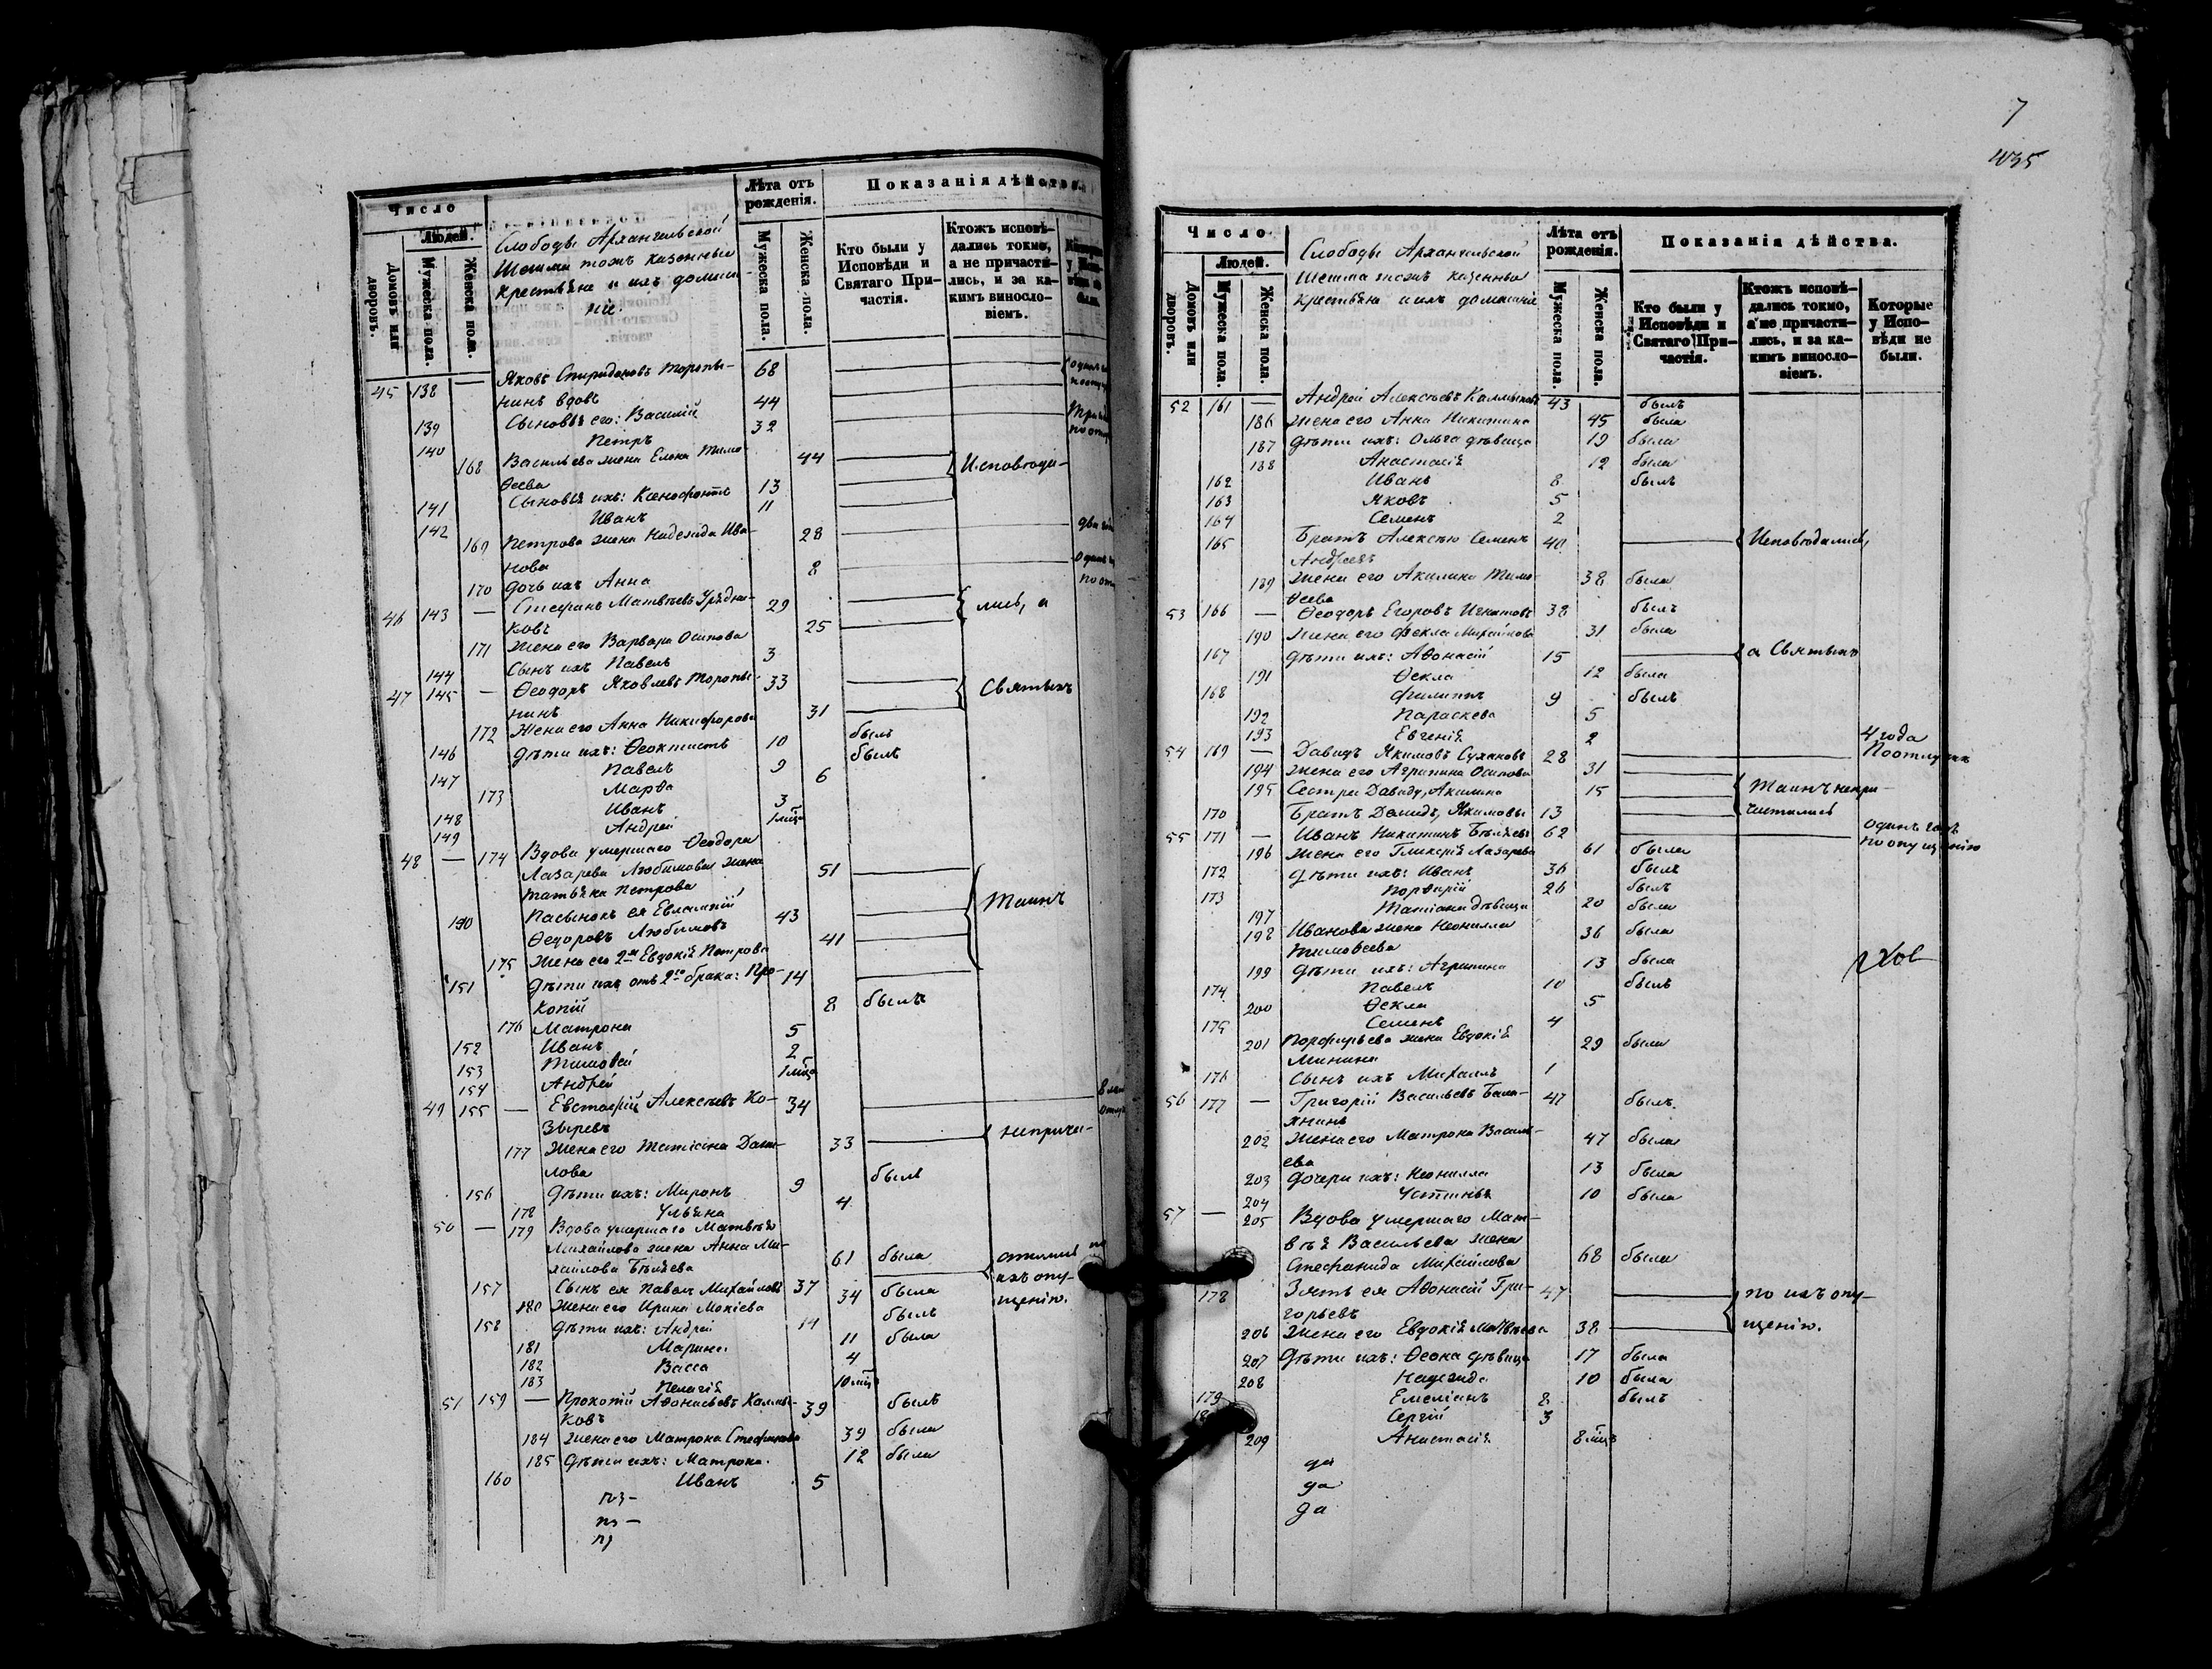 Число
Людей.
Домовъ или дворовъ.
Мужеска пола.
Женска пола.
Слободы Архангельской
Шешма тожъ казенные
крестьяне и ихъ домаш-
ніе.
Лѣта отъ рожденія.
Мужеска пола.
Женска пола.
Показанія дѣйства.
Кто были у Исповѣди и Святаго Причастія.
Ктожъ исповѣдались токмо, а не причастились, и за какимъ винословіемъ.
45 138 — Яковъ Спиридоновъ Торопы- 68
нинъ вдовъ
139 Сыновья его: Василій 44
140 Петръ 32
168 Васильева жена Елена Тимо- 44 Исповѣда-
ѳеева
141 Сыновья ихъ: Ксенофонтъ 13
142 Иванъ 11
169 Петрова жена Надежда Ива- 28
нова
170 дочь ихъ Анна 8
46 143 — Стефанъ Матвѣевъ Урядни- 29 лись, а
ковъ
171 Жена его Варвара Осипова 25
144 Сынъ ихъ Павелъ 3
47 145 — Ѳеодоръ Яковлевъ Торопы- 33 Святыхъ
нинъ
172 Жена его Анна Никифорова 31
146 дѣти ихъ: Ѳеоктистъ 10 былъ
147 Павелъ 9 былъ
173 Марѳа 6
148 Иванъ 3
149 Андрей 1 мца
48 — 174 Вдова умершаго Ѳеодора
Лазарева Любимова жена
Татьяна Петрова 51 Таинъ
150 Пасынокъ ея Евлампій 43
Ѳедоровъ Любимовъ
175 Жена его 2я Евдокія Петрова 41
151 дѣти ихъ отъ 2го брака: Про- 14
копій
176 Матрона 8 была
152 Иванъ 5
153 Тимоѳей 2
154 Андрей 1 мца
49 155 — Евстафій Алексѣевъ Ко- 34
зыревъ
177 Жена его Татіана Дани- 33 неприча-
лова
156 дѣти ихъ: Миронъ 9 былъ
178 Ульяна 4
50 — 179 Вдова умершаго Матвѣя
Михайлова жена Анна Ми-
хайлова Бѣляева 61 была стились по
157 Сынъ ея Павелъ Михайловъ 37 ихъ опу-
180 Жена его Ирина Мокіева 34 была щенію.
158 дѣти ихъ: Андрей 14 былъ
181 Марина 11 была
182 Васса 4
183 Пелагія 10 мцв
51 159 — Прокопій Аѳонасьевъ Калмы- 39 былъ
ковъ
184 Жена его Матрона Стефанова 39 была
185 дѣти ихъ: Матрона 12 была
160 Иванъ 5
7
435
Число
Людей.
Домовъ или дворовъ.
Мужеска пола.
Женска пола.
Слободы Архангельской
Шешма тожъ казенные
крестьяне и ихъ домашніе
Лѣта отъ рожденія.
Мужеска пола.
Женска пола.
Показанія дѣйства.
Кто были у Исповѣди и Святаго Причастія.
Ктожъ исповѣдались токмо, а не причастились, и за какимъ винословіемъ.
Которые у Исповѣди не были.
52 161 — Андрей Алексѣевъ Калмыковъ 43 былъ
186 жена его Анна Никитина 45 была
187 дѣти ихъ: Ольга дѣвица 19 была
188 Анастасія 12 была
162 Иванъ 8 былъ
163 Яковъ 5
164 Семенъ 2
165 Братъ Алексѣю Семенъ 40 Исповѣдались,
Андреевъ
189 жена его Акилина Тимо- 38 была
ѳеева
53 166 — Ѳеодоръ Егоровъ Игнатовъ 38 былъ
190 жена его Фекла Михайлова 31 была
167 дѣти ихъ: Аѳонасій 15 а Святыхъ
191 Ѳекла 12 была
168 Филиппъ 9 былъ
192 Параскева 5
193 Евгенія 2
54 169 — Давидъ Якимовъ Сухановъ 28 4 года
По отлучкѣ
194 жена его Агрипина Осипова 31
195 Сестра Давиду, Акилина 15 Таинъ непри-
170 Братъ Демидъ Якимовы 13 частились
55 171 — Иванъ Никитинъ Бѣляевъ 62 одинъ годъ
по опущенію
196 жена его Гликерія Лазарева 61 была
172 дѣти ихъ: Иванъ 36 былъ
173 Порфирій 26 былъ
197 Татіана дѣвица 20 была
198 Иванова жена Неонилла 36 была
Тимоѳеева
199 дѣти ихъ: Агрипина 13 была
174 Павелъ 10 былъ
200 Ѳекла 5
175 Семенъ 4
201 Порфирьева жена Евдокія 29 была
Минина
176 сынъ ихъ Михаилъ 1
56 177 — Григорій Васильевъ Бала- 47 былъ
202 жена его Матрона Василь- 47 была
ева
203 дочери ихъ: Неонилла 13 была
204 Устинья 10 была
57 — 205 Вдова умершаго Мат-
вѣя Васильева жена
Стефанида Михайлова 68 была
178 Зять ея Аѳонасій Гри- 47 по ихъ опу-
горьевъ
206 жена его Евдокія Матвѣева 38 щенію.
207 дѣти ихъ: Ѳеона дѣвица 17 была
208 Надежда 10 была
179 Емеліанъ 8 былъ
Сергій 3
209 Анастасія 8 мцв
да
да
да